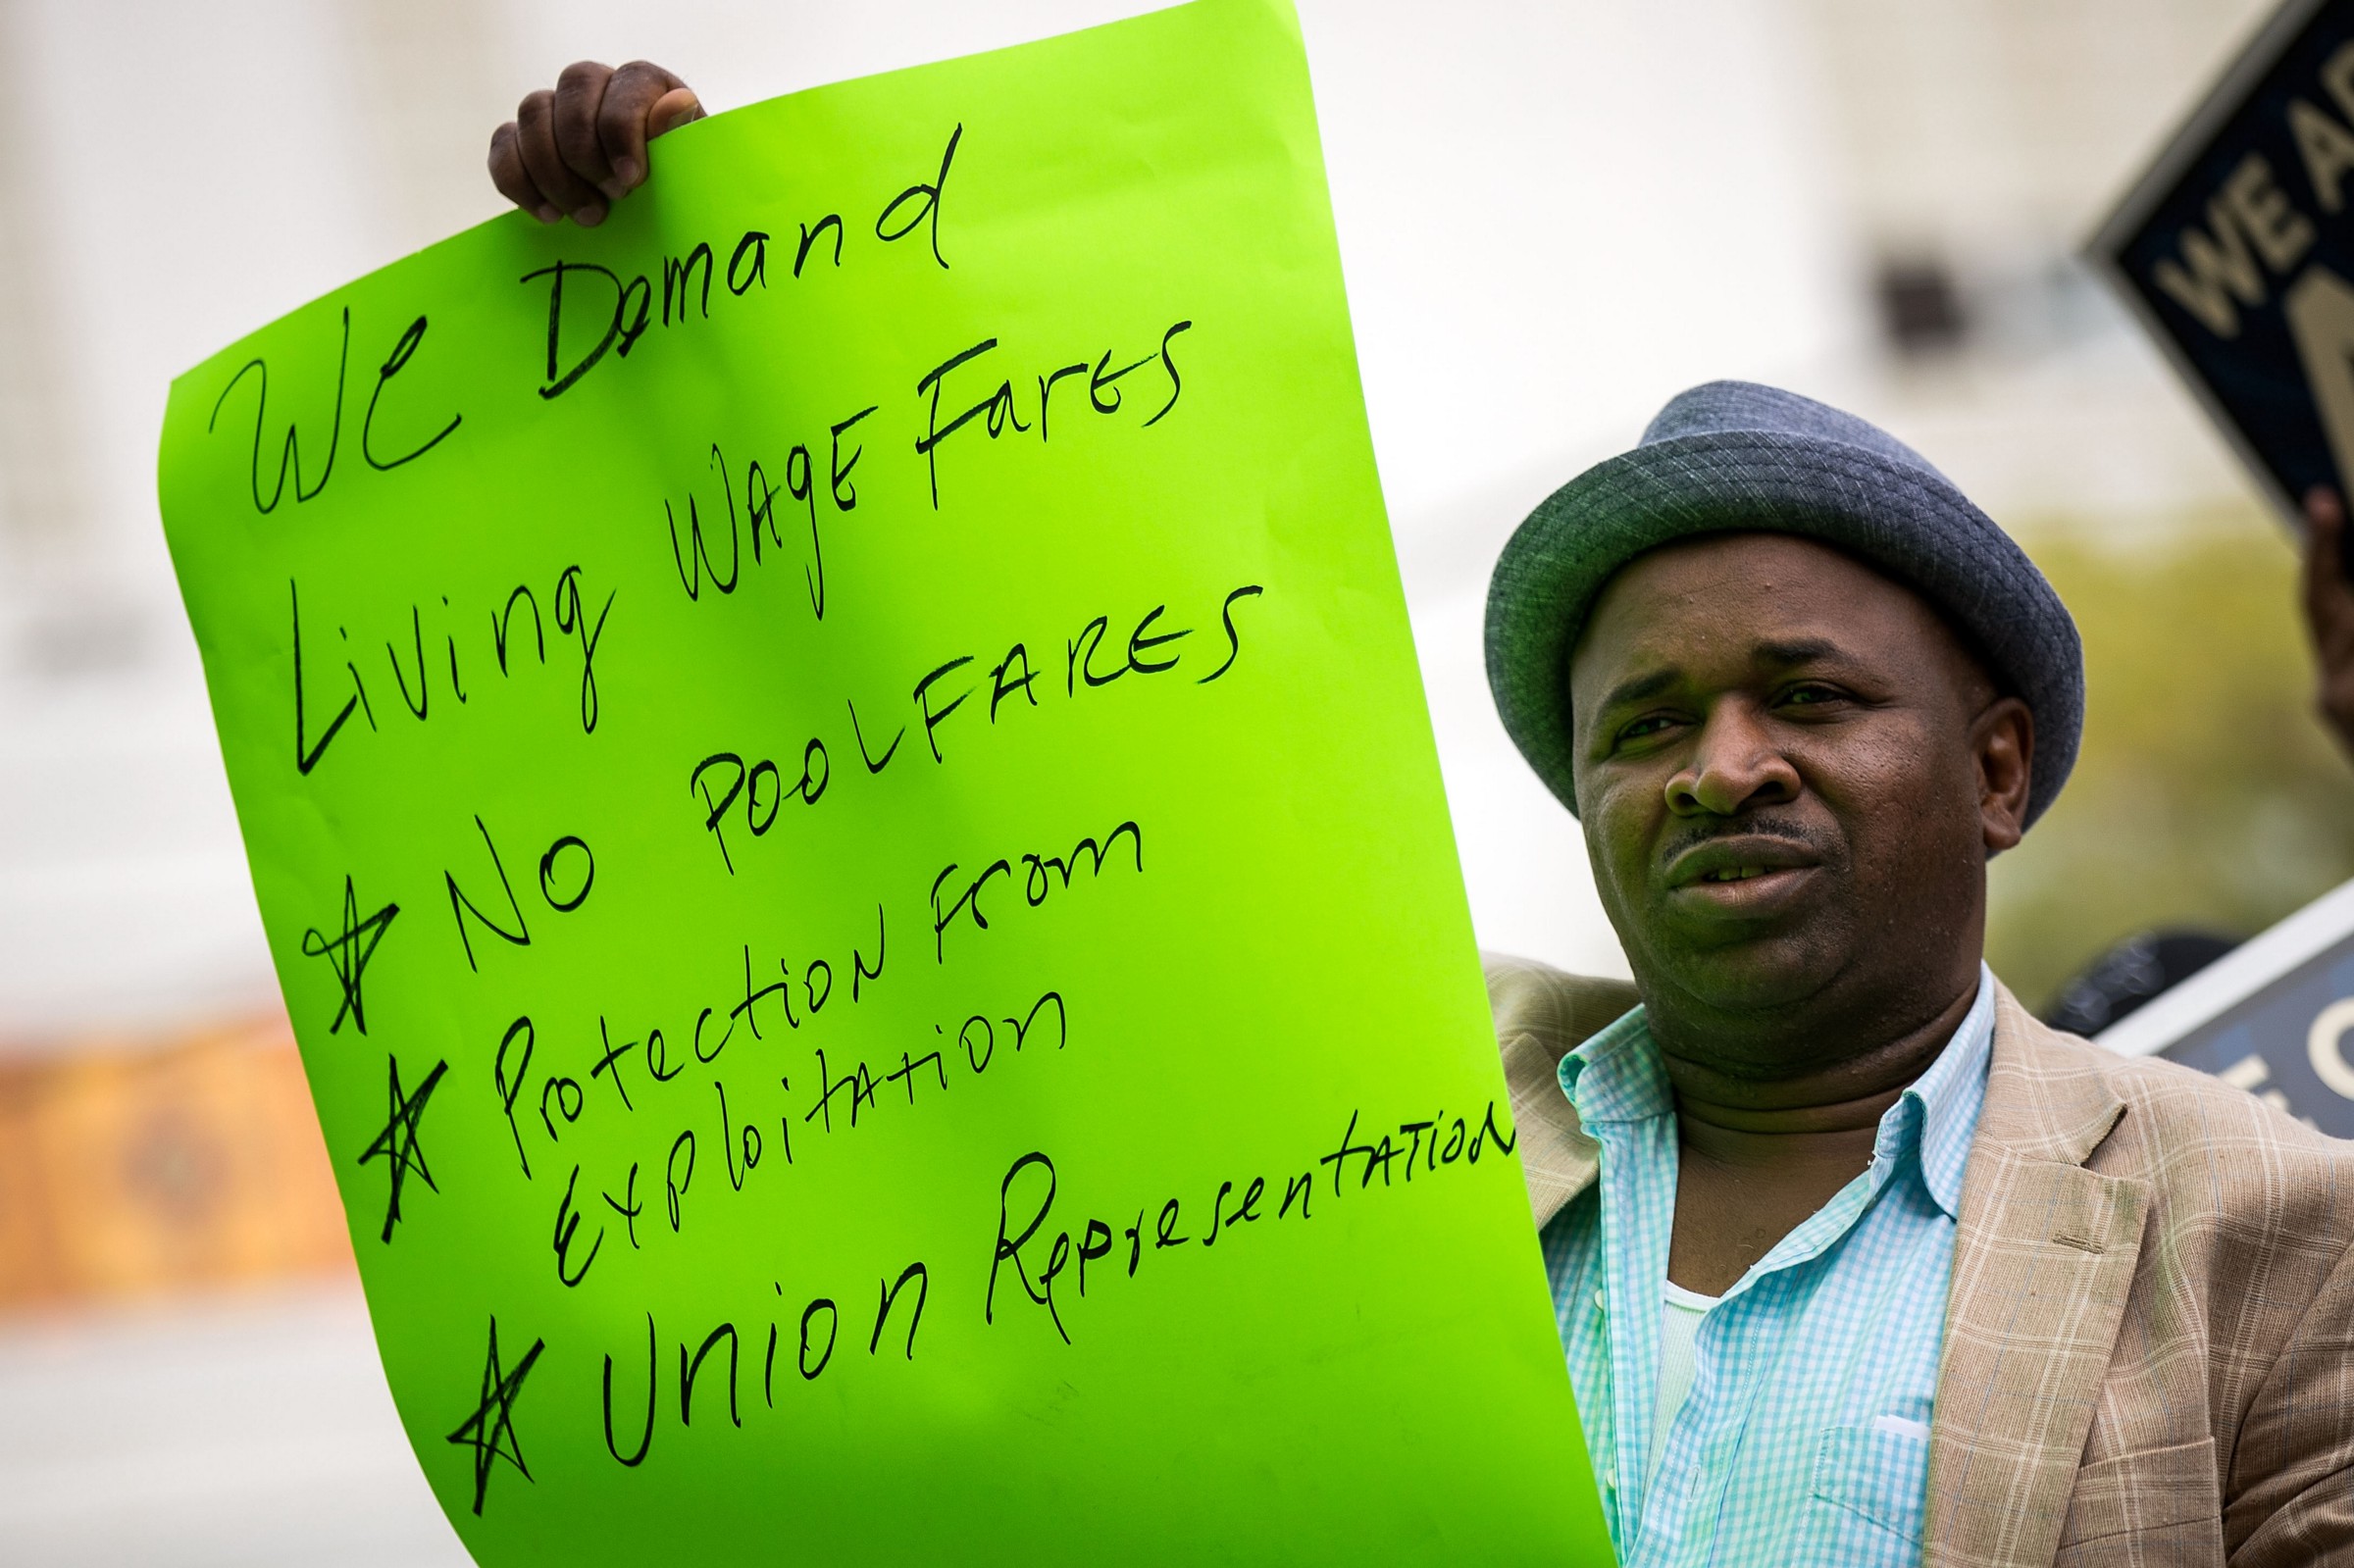 We Demand
Living WAgE FarES
☆ NO POOLFARES
☆ ProtectioN From
ExploitATion
☆ Union RepresentATioN
WE